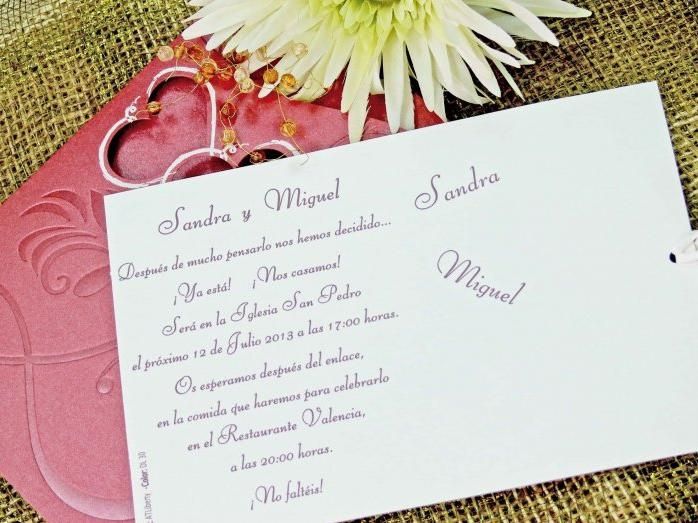 Sandra y Miguel
Después de mucho pensarlo nos hemos decidido...
¡Ya está! ¡Nos casamos!
Será en la Iglesia San Pedro
el próximo 12 de Julio 2013 a las 17:00 horas.
Os esperamos después del enlace,
en la comida que haremos para celebrarlo
en el Restaurante Valencia,
a las 20:00 horas.
¡No faltéis!
Sandra
Miguel
Color: DL 30